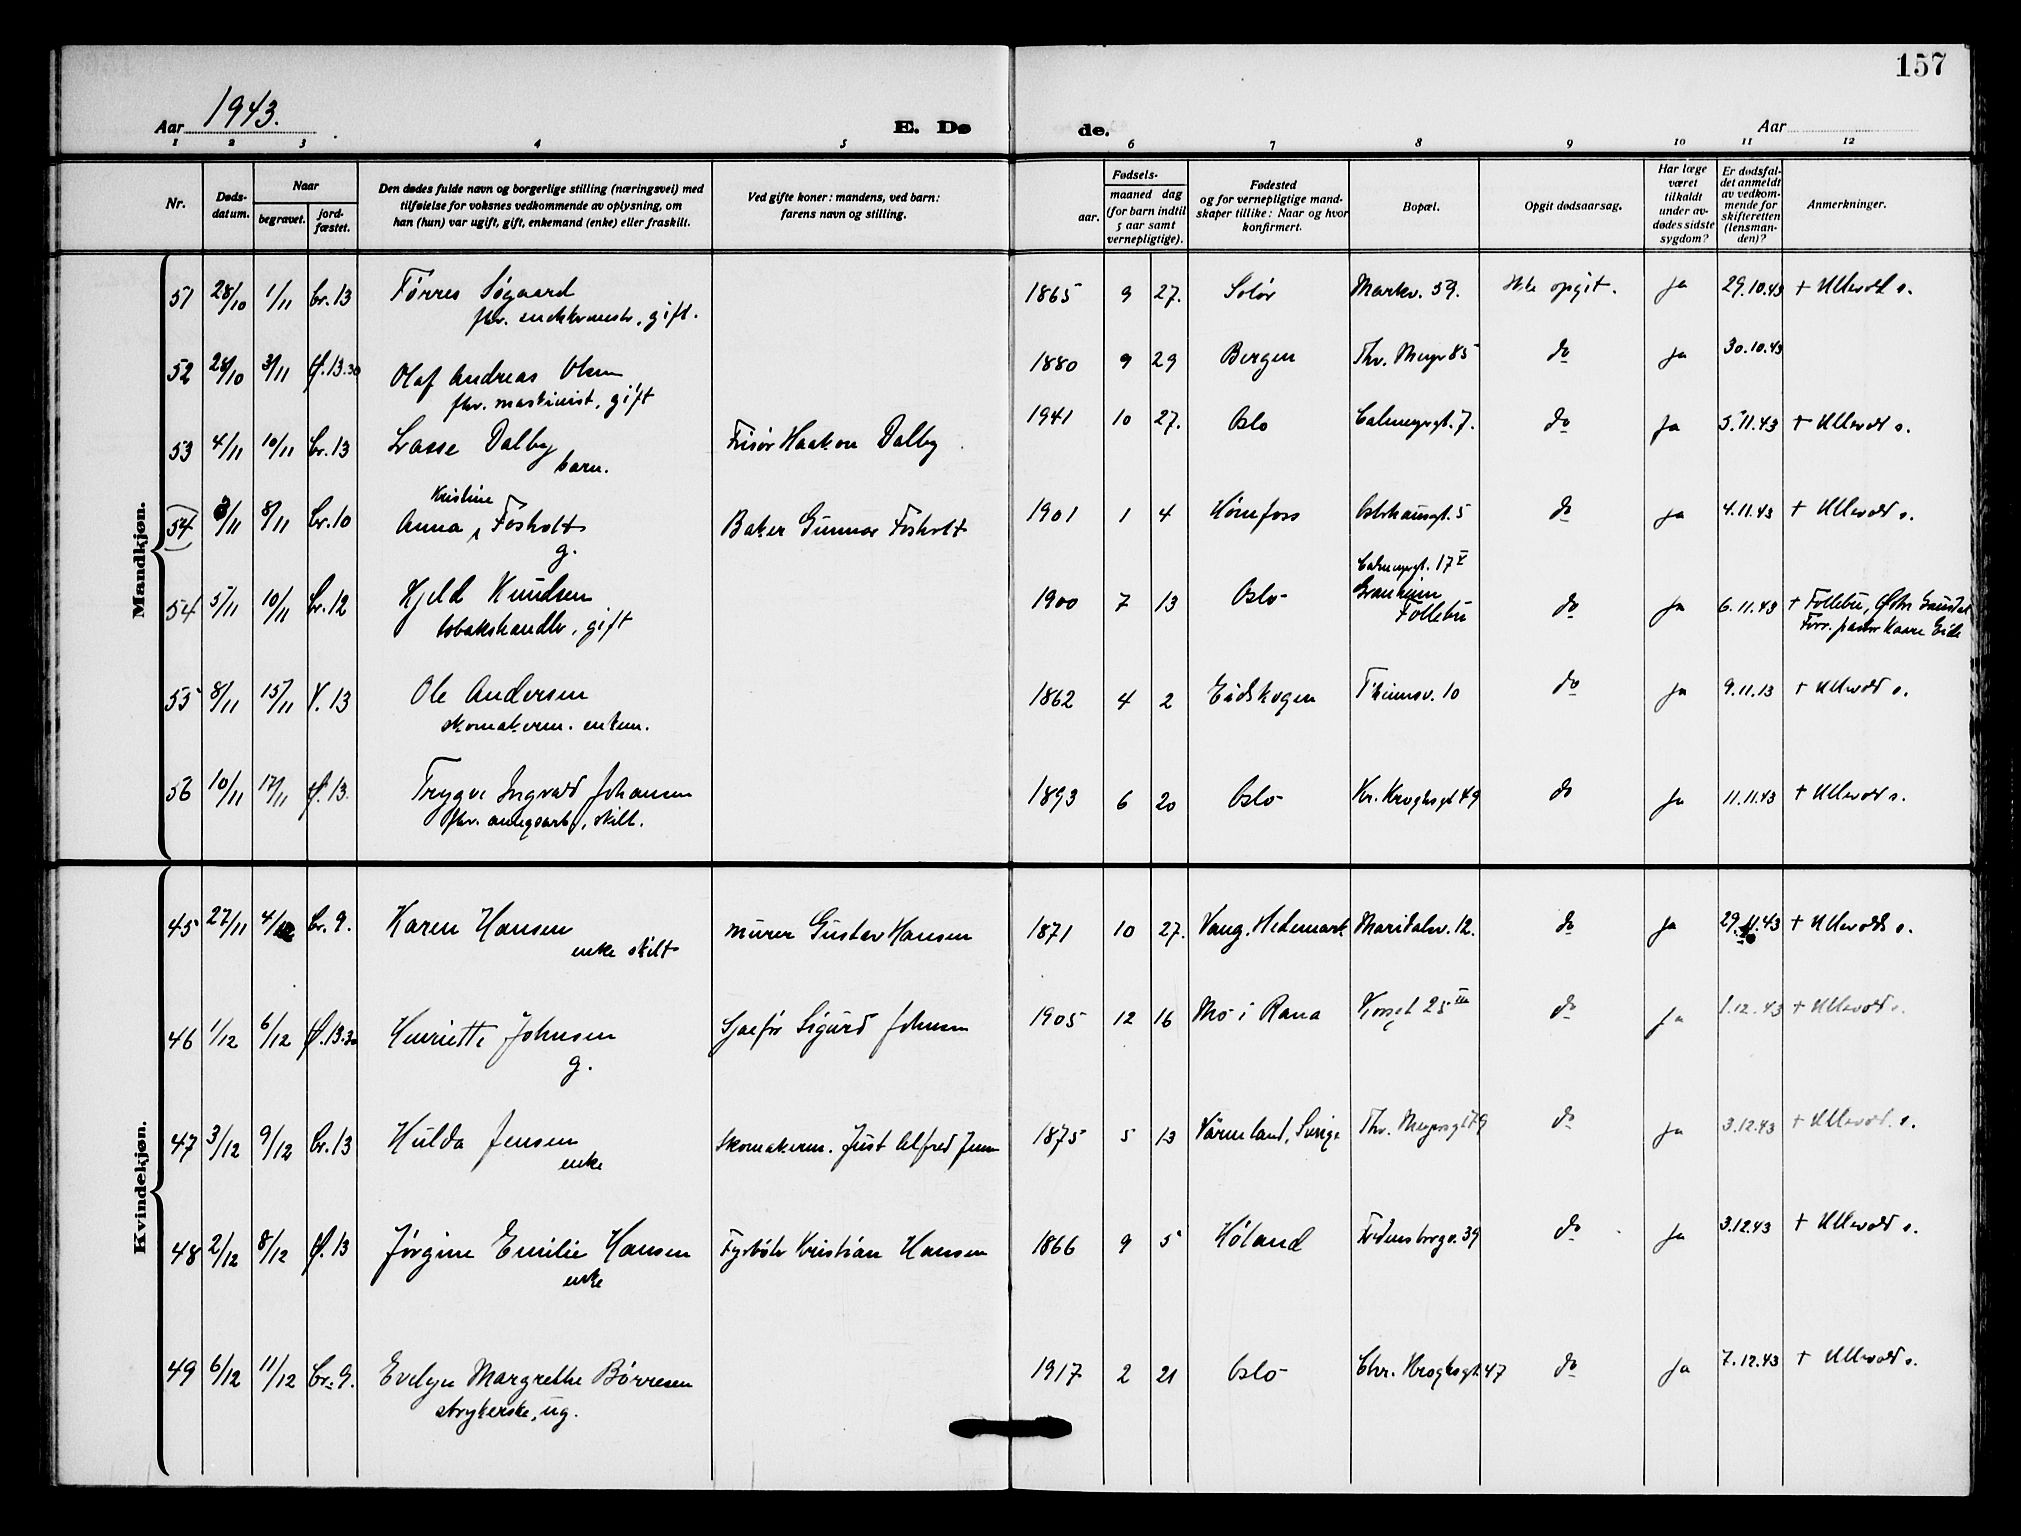 157
Aar 1943. E. Dø de. Aar
1 2 3 4 5 6 7 8 9 10 11 12
Nr.
Døds-
datum.
Naar
begravet.
jord-
fæstet.
Den dødes fulde navn og borgerlige stilling (næringsvei) med
tilføielse for voksnes vedkommende av oplysning, om
han (hun) var ugift, gift, enkemand (enke) eller fraskilt.
Ved gifte koner: mandens, ved barn:
farens navn og stilling.
Fødsels-
aar.
maaned dag
(for barn indtil
5 aar samt
vernepligtige).
Fødested
og for vernepligtige mand-
skaper tillike: Naar og hvor
konfirmert.
Bopæl.
Opgit dødsaarsag.
Har læge
været
tilkaldt
under av-
dødes sidste
sygdom?
Er dødsfal-
det anmeldt
av vedkom-
mende for
skifteretten
(lensman-
den)?
Anmerkninger.
Mandkjøn.
51 28/10 1/11 br. 13 Tørres Søgaard 1865 9 27. Solør Markv. 59. Ikke opgit. ja 29.10.43 + Ullevål s.
gift.
52 28/10 3/11 13.30 Olaf Andreas Olsen 1880 9 29 Bergen Thv. Meyer 85 do ja 30.10.43
fhv. maskinist, gift
53 4/11 10/11 br. 13 Lasse Dalby Frisør Haakon Dalby 1941 10 27. Oslo Calmeyergt. 7. do ja 5.11.43 + Ullevål s.
barn.
Kristine
54 3/11 8/11 br. 10 Anna Fosholt Baker Gunnar Fosholt 1901 1 4 Hønefoss 5 do ja 4.11.43 + Ullevål s.
g.
Calmeyergt. 17 V
54 5/11 10/11 br. 12 Kjeld Knudsen 1900 7 13 Oslo Granheim do ja 6.11.43 + Follebu, Østre Gausdal
tobakshandler, gift Follebu Forr. pastor Kaare Eide
55 8/11 15/11 V. 13 Ole Andersen 1862 4 2 Eidskogen Thiemsv. 10 do ja 9.11.13 + Ullevål s.
skomakerm. enkem.
56 10/11 17/11 13. Trygve Ingvald Johansen 1893 6 20 Oslo Kr. Kroghsgt 49 do ja 11.11.43 + Ullevål s.
fhv. anlegsarb., skilt.
Kvindekjøn.
45 27/11 4/12 br. 9. Karen Hansen murer Gustav Hansen 1871 10 27. Vang, Hedemark Maridalsv. 12. do ja 29.11.43 + Ullevåls s.
enke skilt
46 1/12 6/12 13.30 Henriette Johnsen Sjafør Sigurd Johnsen 1905 12 16 Mo i Rana Korsgt 25 III do ja 1.12.43 + Ullevål s.
g.
47 3/12 9/12 br. 13 Hulda Jensen Skomakerm. Just Alfred Jensen 1875 5 13 Värmland, Sverige Thv. Meyersgt 79 do ja 3.12.43 + Ullevål s.
enke
48 2/12 8/12 13 Jørgine Emilie Hansen Fyrbøter Kristian Hansen 1866 9 5 Høland Fredensborgv. 39 do ja 3.12.43 + Ullevål s.
enke
49 6/12 11/12 br. 9. Evelyn Margrethe Børresen 1917 2 21 Oslo Chr. Kroghsgt. 47 do ja 7.12.43 + Ullevål s.
strykerske, ug.